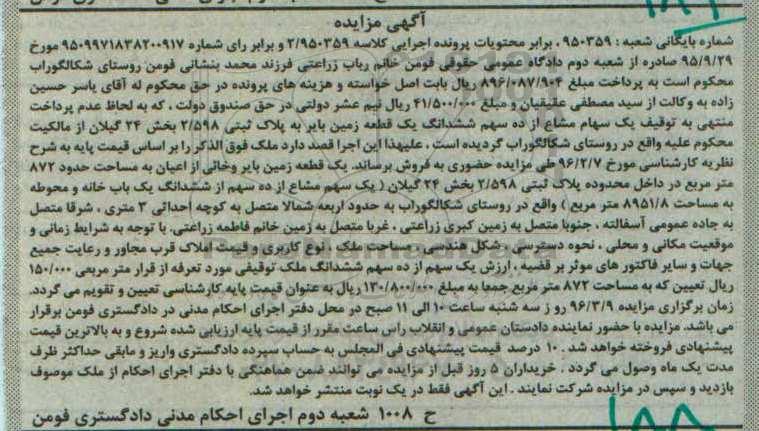 ۱۸۹
آگهی مزایده
شماره بایگانی شعبه : ۹۵۰۳۵۹ ، برابر محتویات پرونده اجرایی کلاسه ۲/۹۵۰۳۵۹ و برابر رای شماره ۹۵۰۹۹۷۱۸۳۸۲۰۰۹۱۷ مورخ
۹۵/۹/۲۹ صادره از شعبه دوم دادگاه عمومی حقوقی فومن خانم رباب زراعتی فرزند محمد بنشانی فومن روستای شکالگوراب
محکوم است به پرداخت مبلغ ۸۹۶/۰۸۷/۹۰۴ ریال بابت اصل خواسته و هزینه های پرونده در حق محکوم له آقای یاسر حسین
زاده به وکالت از سید مصطفی عقیقیان و مبلغ ۴۱/۵۰۰/۰۰۰ ریال نیم عشر دولتی در حق صندوق دولت ، که به لحاظ عدم پرداخت
منتهی به توقیف یک سهام مشاع از ده سهم ششدانگ یک قطعه زمین بایر به پلاک ثبتی ۲/۵۹۸ بخش ۲۴ گیلان از مالکیت
محکوم علیه واقع در روستای شکالگوراب گردیده است ، علیهذا این اجرا قصد دارد ملک فوق الذکر را بر اساس قیمت پایه به شرح
نظریه کارشناسی مورخ ۹۶/۲/۷ طی مزایده حضوری به فروش برساند. یک قطعه زمین بایر وخالی از اعیان به مساحت حدود ۸۷۲
متر مربع در داخل محدوده پلاک ثبتی ۲/۵۹۸ بخش ۲۴ گیلان ( یک سهم مشاع از ده سهم از ششدانگ یک باب خانه و محوطه
به مساحت ۸۹۵۱/۸ متر مربع ) واقع در روستای شکالگوراب به حدود اربعه شمالا متصل به کوچه احداثی ۳ متری ، شرقا متصل
به جاده عمومی آسفالته ، جنوبا متصل به زمین کبری زراعتی ، غربا متصل به زمین خانم فاطمه زراعتی. با توجه به شرایط زمانی و
موقعیت مکانی و محلی ، نحوه دسترسی ، شکل هندسی ، مساحت ملک ، نوع کاربری و قیمت املاک قرب مجاور و رعایت جمیع
جهات و سایر فاکتور های موثر بر قضیه ، ارزش یک سهم از ده سهم ششدانگ ملک توقیفی مورد تعرفه از قرار متر مربعی ۱۵۰/۰۰۰
ریال تعیین که به مساحت ۸۷۲ متر مربع جمعا به مبلغ ۱۳۰/۸۰۰/۰۰۰ ریال به عنوان قیمت پایه کارشناسی تعیین و تقویم می گردد.
زمان برگزاری مزایده ۹۶/۳/۹ رو ز سه شنبه ساعت ۱۰ الی ۱۱ صبح در محل دفتر اجرای احکام مدنی در دادگستری فومن برقرار
می باشد. مزایده با حضور نماینده دادستان عمومی و انقلاب راس ساعت مقرر از قیمت پایه ارزیابی شده شروع و به بالاترین قیمت
پیشنهادی فروخته خواهد شد . ۱۰ درصد قیمت پیشنهادی فی المجلس به حساب سپرده دادگستری واریز و مابقی حداکثر ظرف
مدت یک ماه وصول می گردد . خریداران ۵ روز قبل از مزایده می توانند ضمن هماهنگی با دفتر اجرای احکام از ملک موصوف
بازدید و سپس در مزایده شرکت نمایند . این آگهی فقط در یک نوبت منتشر خواهد شد.
ح ۱۰۰۸ شعبه دوم اجرای احکام مدنی دادگستری فومن
۱۸۸